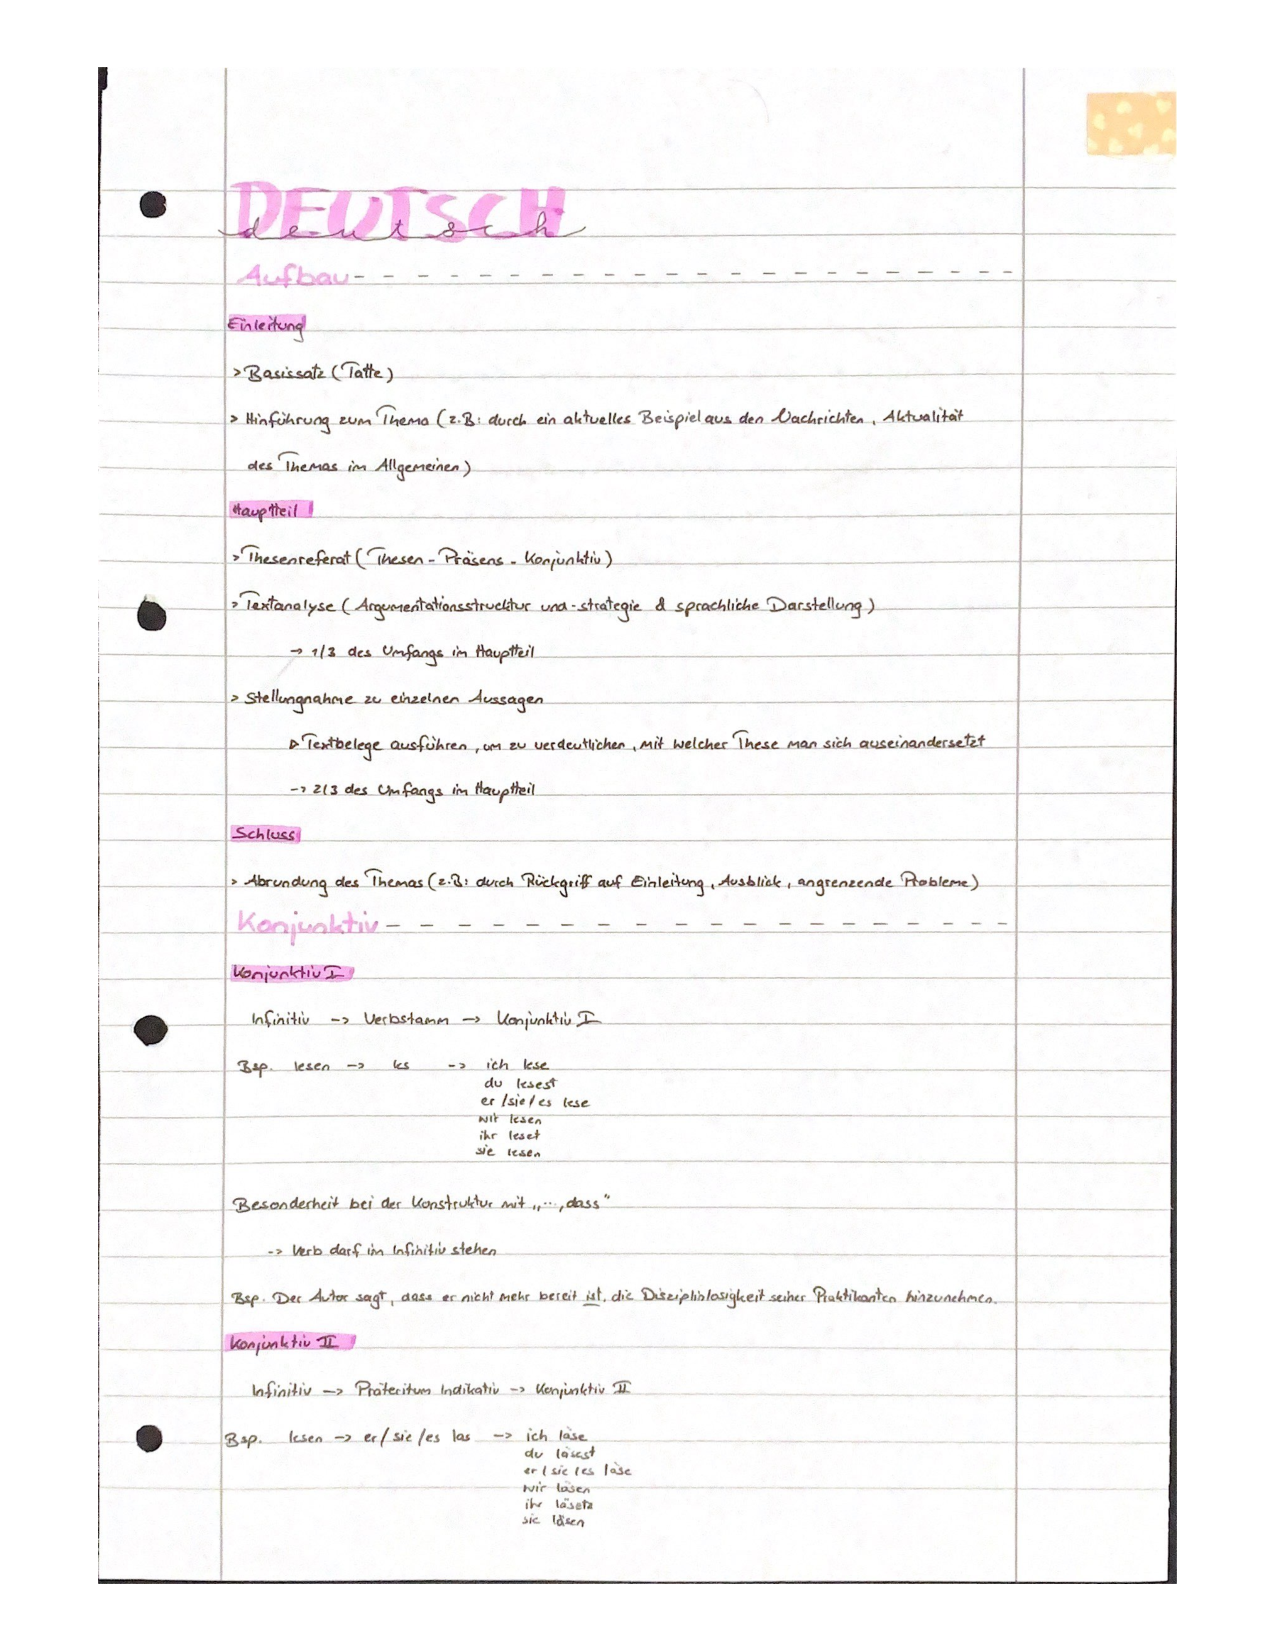 DEUTSCH
deutsch
Aufbau
Einleitung
> Basissatz (Tatte)
> Hinführung zum Thema (z.B: durch ein aktuelles Beispiel aus den Nachrichten, Aktualität
des Themas im Allgemeinen)
Hauptteil
> Thesenreferat (Thesen - Präsens - Konjunktiv)
> Textanalyse (Argumentationsstrucktur und -strategie & sprachliche Darstellung)
→ 1/3 des Umfangs im Hauptteil
> Stellungnahme zu einzelnen Aussagen
▷ Textbelege ausführen, um zu verdeutlichen, mit welcher These man sich auseinandersetzt
→ 2/3 des Umfangs im Hauptteil
Schluss
> Abrundung des Themas (z.B: durch Rückgriff auf Einleitung, Ausblick, angrenzende Probleme)
Konjunktiv
Konjunktiv I
Infinitiv -> Verbstamm -> Konjunktiv I
Bsp. lesen -> les -> ich lese
du lesest
er/sie/es lese
wir lesen
ihr leset
sie lesen
Besonderheit bei der Konstruktur mit „..., dass"
-> Verb darf im Infinitiv stehen
Bsp. Der Autor sagt, dass er nicht mehr bereit ist, die Disziplinlosigkeit seiner Praktikanten hinzunehmen.
Konjunktiv II
Infinitiv -> Präteritum Indikativ -> Konjunktiv II
Bsp. lesen -> er/sie/es las -> ich läse
du läsest
er/sie/es läse
wir läsen
ihr läsetz
sie läsen